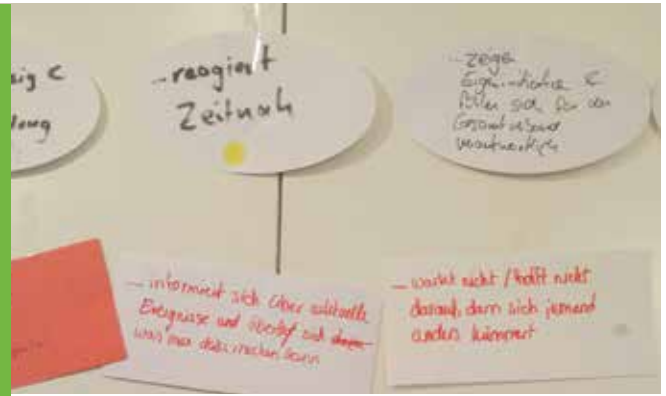 sig &
...reagiert
Zeitnah
...zeigt
Eigeninitiative &
fühlen sich für den
Gesamtverband
verantwortlich
... informiert sich über aktuelle
Ereignisse und überlegt sich
was man dazu machen kann
... wartet nicht / hofft nicht
darauf, dass sich jemand
anders kümmert